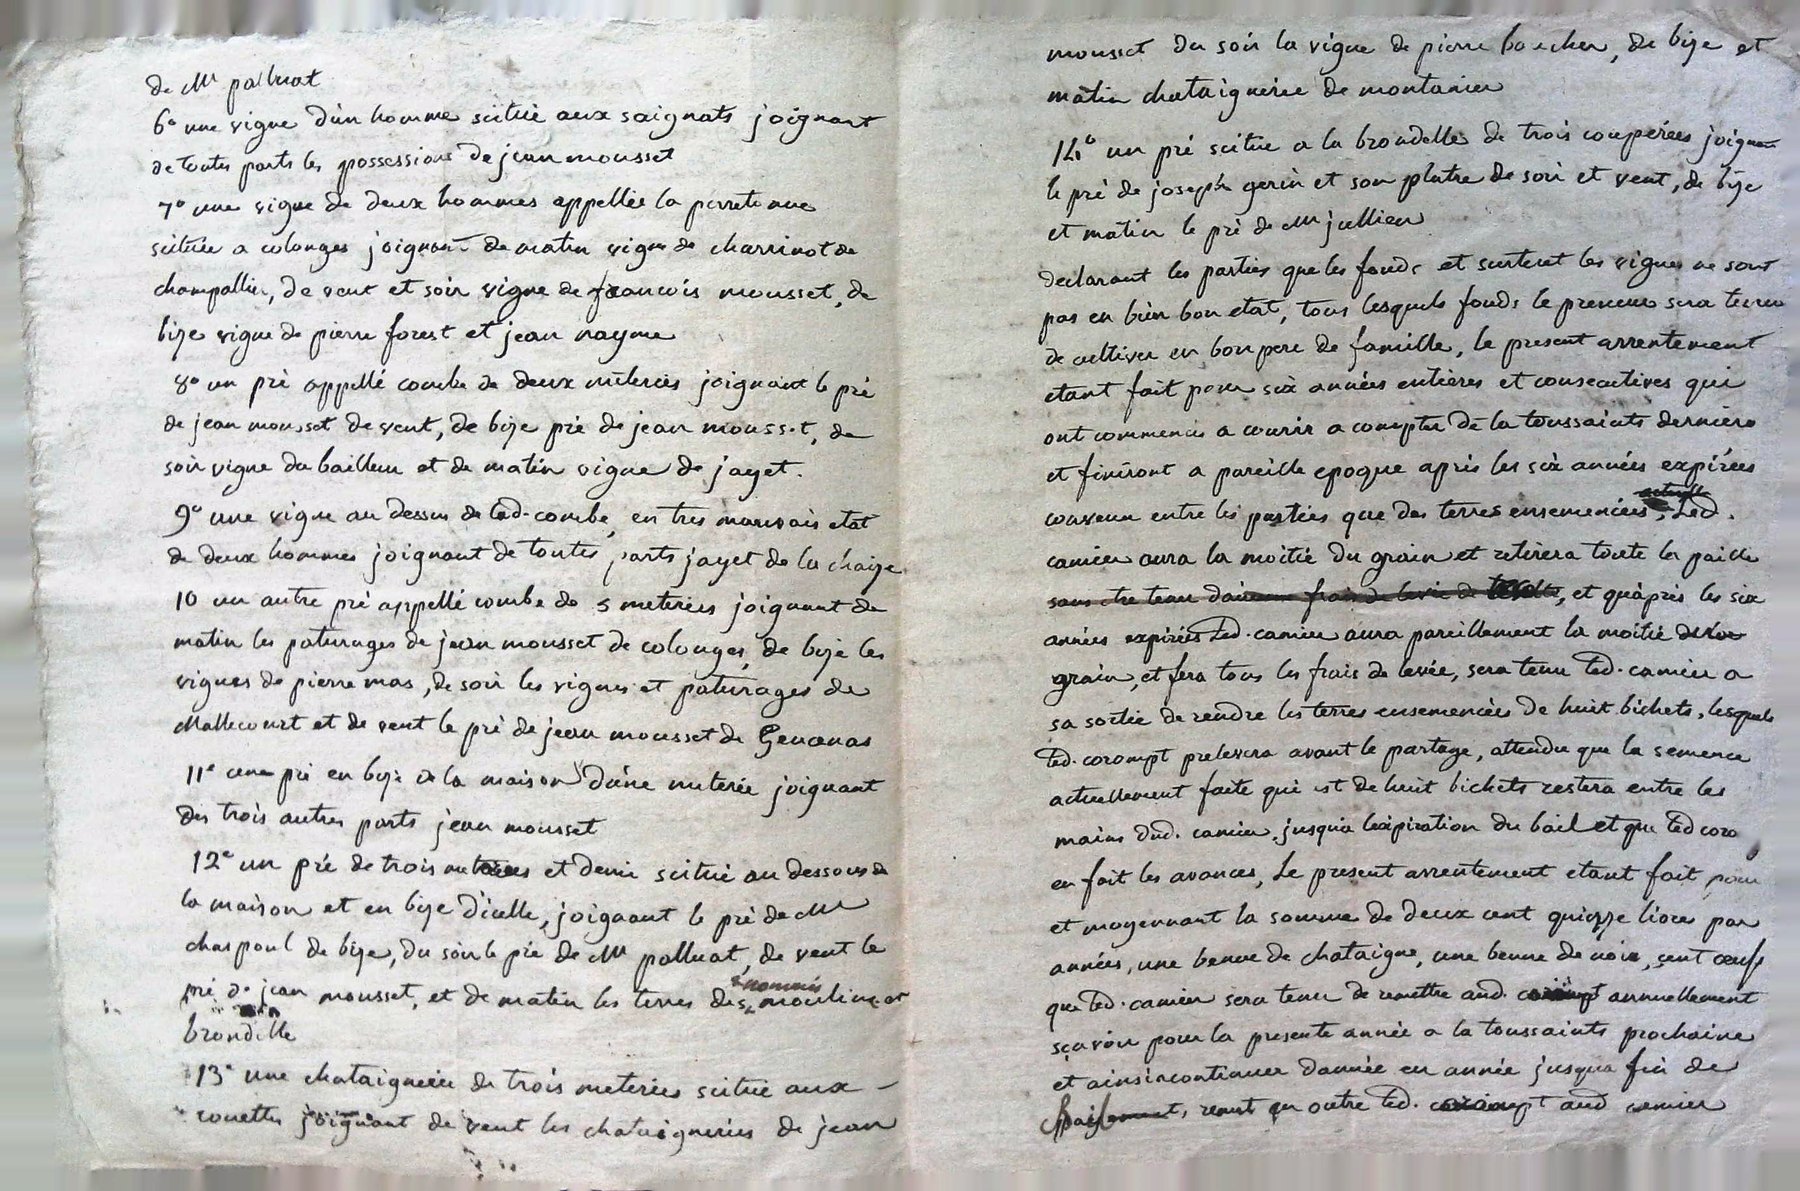 de Mr palluat
6° une vigne d'un homme scituée aux saignats joignant
de toutes parts les possessions de jean mousset
7° une vigne de deux hommes appellée la perretonne
scituée a colonges joignant de matin vigne de charrinot de
champallier, de vent et soir vigne de francois mousset, de
bize vigne de pierre forest et jean nayme
8° un pré appellé combe de deux meterées joignant le pré
de jean mousset de vent, de bize pré de jean mousset, de
soir vigne du bailleur et de matin vigne de jayet.
9° une vigne au dessus de lad. combe, en tres mauvais etat
de deux hommes joignant de toutes parts jayet de la chaize
10 un autre pré appellé combe de 5 meterées joignant de
matin les paturages de jean mousset de colonges, de bize les
vignes de pierre mas, de soir les vignes et paturages de
Mallecourt et de vent le pré de jean mousset de
11° pré en bize de la maison d'une meterée joignant
des trois autres parts jean mousset
12° un pré de trois meterées et demi scitué au dessous de
la maison et en bize d'icelle, joignant le pré de Mr
chaspoul de bize, du soir le pré de Mr palluat, de vent le
pré de jean mousset, et de matin les terres des nommés moulin et
brondelle
13° une chataigneree de trois meterées scituée aux
rouettes joignant de vent les chataigneries de jean
mousset du soir la vigne de pierre, de bize et
matin chataignerie de montanier
14° un pré scitue a la brondelle de trois coupérées joignant
le pré de joseph gerin et son platre de soir et vent, de bize
et matin le pré de Mr jullien
declarant les parties que les fonds et surtout les vignes ne sont
pas en bien bon etat, tous lesquels fonds le preneur sera tenu
de cultiver en bon pere de famille, le present arrentement
etant fait pour six années entières et consecutives qui
ont commencé a courir a compter de la toussaints derniere
et finiront a pareille epoque aprés les six années expirées
convenu entre les parties que des terres ensemencées, Led.
camier aura la moitié du grain et retirera toute la paille
sans etre tenu frais de levée de, et qu'après les six
années expirées Led. camier aura pareillement la moitié
grain, et fera tous les frais de levée, sera tenu led. camier a
sa sortie de rendre les terres ensemencées de huit bichets, lesquels
led. corompt prelevera avant le partage, attendu que la semence
actuellement faite qui est de huit bichets restera entre les
mains dud. camier jusqu'a l'expiration du bail et que led coro
en fait les avances, Le present arrentement etant fait pour
et moyennant la somme de deux cent quinze livres par
années, une benne de chataigne, une benne de noix, cent œufs
que led. camier sera tenu de remettre aud. corompt annuellement
sçavoir pour la presente année a la toussaints prochaine
et ainsi continuer d'année en année jusqu'a fin de
bail, en outre led. corompt aud camier